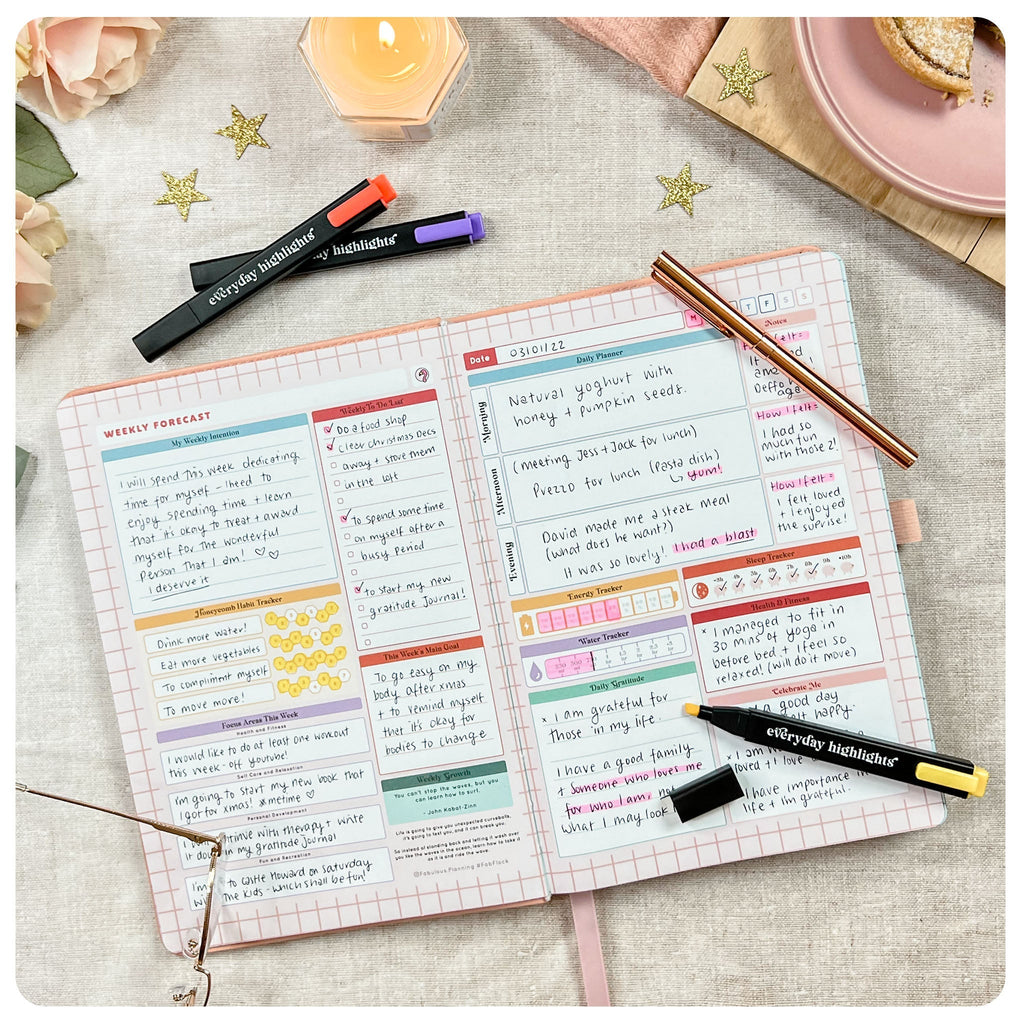 everyday highlights
highlights
WEEKLY FORECAST
My Weekly Intention
I will spend this week dedicating
time for myself - I need to
enjoy spending time + learn
that it's okay to treat + award
myself for the wonderful
person that I am! ♡♡
I deserve it
Honeycomb Habit Tracker
Drink more water!
Eat more vegetables
To compliment myself
To move more!
Focus Areas This Week
Health and Fitness
I would like to do at least one workout
this week - off youtube!
Self Care and Relaxation
I'm going to start my new book that
I got for xmas! #metime ♡
Personal Development
with therapy + write
it down in my gratitude journal
Fun and Recreation
to Castle Howard on Saturday
The kids - which shall be fun!
Weekly To Do List
Do a food shop
Clear Christmas Decs
away + store them
in the loft
To spend some time
on myself after a
busy period
to start my new
gratitude journal!
This Week's Main Goal
To go easy on my
body after xmas
+ to remind myself
that it's okay for
bodies to change
Weekly Growth
You can't stop the waves, but you
can learn how to surf.
- John Kabat-Zinn
Life is going to give you unexpected curveballs,
it's going to test you, and it can break you.
So instead of standing back and letting it wash over
you like the waves in the ocean, learn how to take it
as it is and ride the wave.
@Fabulous.Planning #FabFlock
M T F S S
Date 03/01/22
Daily Planner
Morning
Natural yoghurt with
honey + pumpkin seeds.
Afternoon
(meeting Jess + Jack for lunch)
Prezzo for lunch (Pasta dish)
yum!
Evening
David made me a steak meal
(what does he want?)
It was so lovely! I had a blast
Notes
felt:
again
How I felt:
I had so
much fun
with those 2!
How I felt:
I felt loved
+ I enjoyed
the suprise!
Energy Tracker
Water Tracker
Sleep Tracker
Health & Fitness
x I managed to fit in
30 mins of yoga in
before bed + I feel so
relaxed! (will do it move)
Daily Gratitude
x I am grateful for
those in my life
I have a good family
+ someone who loves me
for who I am,
what I may look
Celebrate Me
a good day
felt happy.
loved + I love
have importance in
life + I'm grateful.
everyday highlights